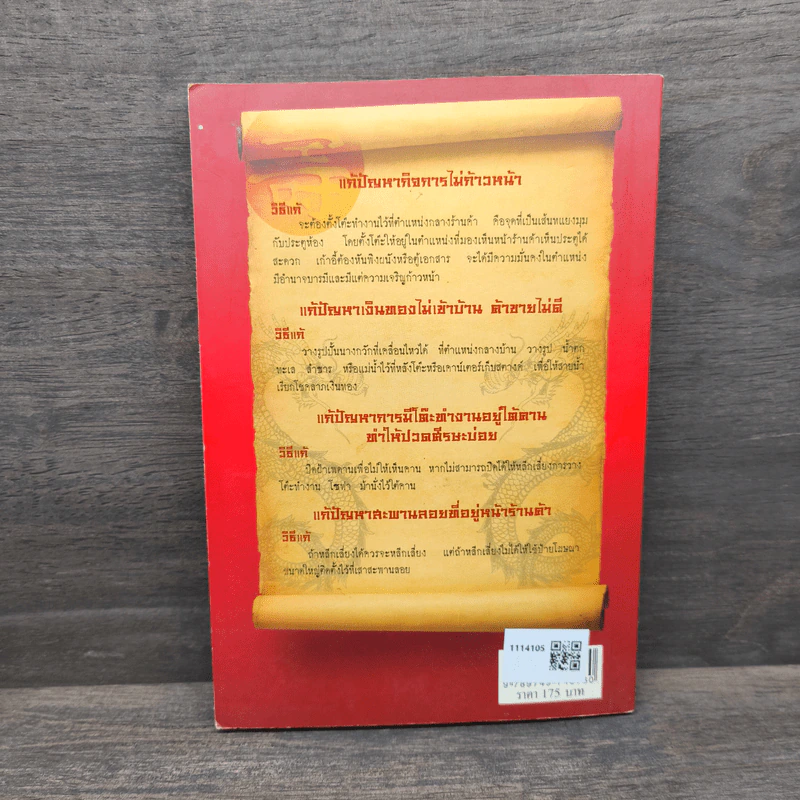 แก้ปัญหากิจการไม่ก้าวหน้า
วิธีแก้
จะต้องตั้งโต๊ะทำงานไว้ที่ตำแหน่งกลางร้านค้า คือจุดที่เป็นเส้นทแยงมุม
กับประตูห้อง โดยตั้งโต๊ะให้อยู่ในตำแหน่งที่มองเห็นหน้าร้านค้าเห็นประตูได้
สะดวก เก้าอี้ต้องหันพิงผนังหรือตู้เอกสาร จะได้มีความมั่นคงในตำแหน่ง
มีอำนาจบารมีและมีแต่ความเจริญก้าวหน้า
แก้ปัญหาเงินทองไม่เข้าบ้าน ค้าขายไม่ดี
วิธีแก้
วางรูปปั้นนางกวักที่เคลื่อนไหวได้ ที่ตำแหน่งกลางบ้าน วางรูป น้ำตก
ทะเล ลำธาร หรือแม่น้ำไว้ที่หลังโต๊ะหรือเคาน์เตอร์เก็บสตางค์ เพื่อให้สายน้ำ
เรียกโชคลาภเงินทอง
แก้ปัญหาการมีโต๊ะทำงานอยู่ใต้คาน
ทำให้ปวดศีรษะบ่อย
วิธีแก้
ปิดฝ้าเพดานเพื่อไม่ให้เห็นคาน หากไม่สามารถปิดได้ให้หลีกเลี่ยงการวาง
โต๊ะทำงาน โซฟา ม้านั่งไว้ใต้คาน
แก้ปัญหาสะพานลอยที่อยู่หน้าร้านค้า
วิธีแก้
ถ้าหลีกเลี่ยงได้ควรจะหลีกเลี่ยง แต่ถ้าหลีกเลี่ยงไม่ได้ให้ใช้ป้ายโฆษณา
ขนาดใหญ่ติดตั้งไว้ที่เสาสะพานลอย
1114105
ราคา 175 บาท